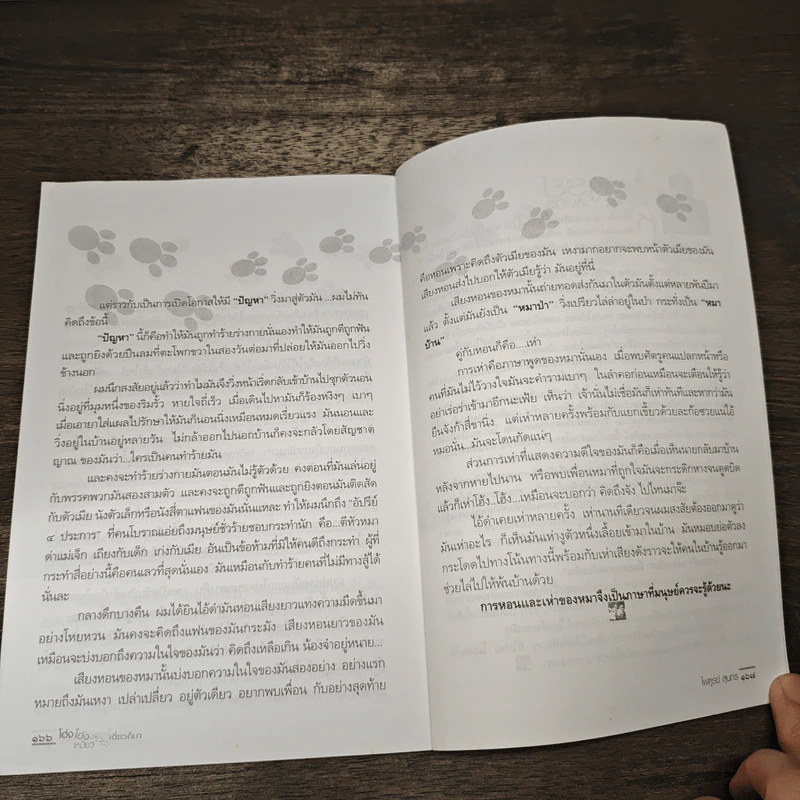 แต่ราวกับเป็นการเปิดโอกาสให้มี "ปัญหา" วิ่งมาสู่ตัวมัน ...ผมไม่ทัน
คิดถึงข้อนี้
"ปัญหา" นี้ก็คือทำให้มันถูกทำร้ายร่างกายนั่นเองทำให้มันถูกตีถูกฟัน
และถูกยิงด้วยปืนลมที่ตะโพกขวาในสองวันต่อมาที่ปล่อยให้มันออกไปวิ่ง
ข้างนอก
ผมนึกสงสัยอยู่แล้วว่าทำไมมันจึงวิ่งหน้าเริ่ดกลับเข้าบ้านไปซุกตัวนอน
นิ่งอยู่ที่มุมหนึ่งของริมรั้ว หายใจถี่เร็ว เมื่อเดินไปหามันก็ร้องหงิงๆ เบาๆ
เมื่อเอายาใส่แผลไปรักษาให้มันก็นอนนิ่งเหมือนหมดเรี่ยวแรง มันนอนและ
วิ่งอยู่ในบ้านอยู่หลายวัน ไม่กล้าออกไปนอกบ้านก็คงจะกลัวโดยสัญชาต
ญาณ ของมันว่า...ใครเป็นคนทำร้ายมัน
และคงจะทำร้ายร่างกายมันตอนมันไม่รู้ตัวด้วย คงตอนที่มันเล่นอยู่
กับพรรคพวกมันสองสามตัว และคงจะถูกตีถูกฟันและถูกยิงตอนมันติดสัด
กับตัวเมีย นังตัวเล็กหรือนังสี่ตาแฟนของมันนั่นแหละ ทำให้ผมนึกถึง "อัปรีย์
๔ ประการ" ที่คนโบราณเอ่ยถึงมนุษย์ชั่วร้ายชอบกระทำนัก คือ...ตีหัวหมา
ด่าแม่เจ๊ก เถียงกับเด็ก เก่งกับเมีย อันเป็นข้อห้ามที่มิให้คนดีถึงกระทำ ผู้ที่
กระทำสี่อย่างนี้คือคนเลวที่สุดนั่นเอง มันเหมือนกับทำร้ายคนที่ไม่มีทางสู้ได้
นั่นละ
กลางดึกบางคืน ผมได้ยินไอ้ดำมันหอนเสียงยาวแทงความมืดขึ้นมา
อย่างโหยหวน มันคงจะคิดถึงแฟนของมันกระมัง เสียงหอนยาวของมัน
เหมือนจะบ่งบอกถึงความในใจของมันว่า คิดถึงเหลือเกิน น้องจ๋าอยู่หนาย...
เสียงหอนของหมานั้นบ่งบอกความในใจของมันสองอย่าง อย่างแรก
หมายถึงมันเหงา เปล่าเปลี่ยว อยู่ตัวเดียว อยากพบเพื่อน กับอย่างสุดท้าย
๑๖๖ โฮ่งโฮ่ง
คือหอนเพราะคิดถึงตัวเมียของมัน เหงามากอยากจะพบหน้าตัวเมียของมัน
เสียงหอนส่งไปบอกให้ตัวเมียรู้ว่า มันอยู่ที่นี่
เสียงหอนของหมานั้นถ่ายทอดส่งกันมาในตัวมันตั้งแต่หลายพันปีมา
แล้ว ตั้งแต่มันยังเป็น "หมาป่า" วิ่งเปรียวไล่ล่าอยู่ในป่า กระทั่งเป็น "หมา
บ้าน"
คู่กับหอนก็คือ....เห่า
การเห่าคือภาษาพูดของหมานั่นเอง เมื่อพบศัตรูคนแปลกหน้าหรือ
คนที่มันไม่ไว้วางใจมันจะคำรามเบาๆ ในลำคอก่อนเหมือนจะเตือนให้รู้ว่า
อย่าเร่อร่าเข้ามาอีกนะเฟ้ย เห็นว่า เจ้านั่นไม่เชื่อมันก็เห่าทันทีและหากว่ามัน
ยืนจังก้าสี่ขานิ่ง แต่เห่าหลายครั้งพร้อมกับแยกเขี้ยวด้วยละก้อซวยแน่ไอ้
หมอนั่น...มันจะโดนกัดแน่ๆ
ส่วนการเห่าที่แสดงความดีใจของมันก็คือเมื่อเห็นนายกลับมาบ้าน
หลังจากหายไปนาน หรือพบเพื่อนหมาที่ถูกใจมันจะกระดิกหางจนตูดบิด
แล้วก็เห่าโฮ้ง..โฮ้ง...เหมือนจะบอกว่า คิดถึงจัง ไปไหนมาจ๊ะ
ไอ้ดำเคยเห่าหลายครั้ง เห่านานทีเดียวจนผมสงสัยต้องออกมาดูว่า
มันเห่าอะไร ก็เห็นมันเห่างูตัวหนึ่งเลื้อยเข้ามาในบ้าน มันหมอบย่อตัวลง
กระโดดไปทางโน้นทางนี้พร้อมกับเห่าเสียงดังราวจะให้คนในบ้านรู้ออกมา
ช่วยไล่ไปให้พ้นบ้านด้วย
การหอนและเห่าของหมาจึงเป็นภาษาที่มนุษย์ควรจะรู้ด้วยนะ
ไพฑูรย์ สุนทร ๑๖๗